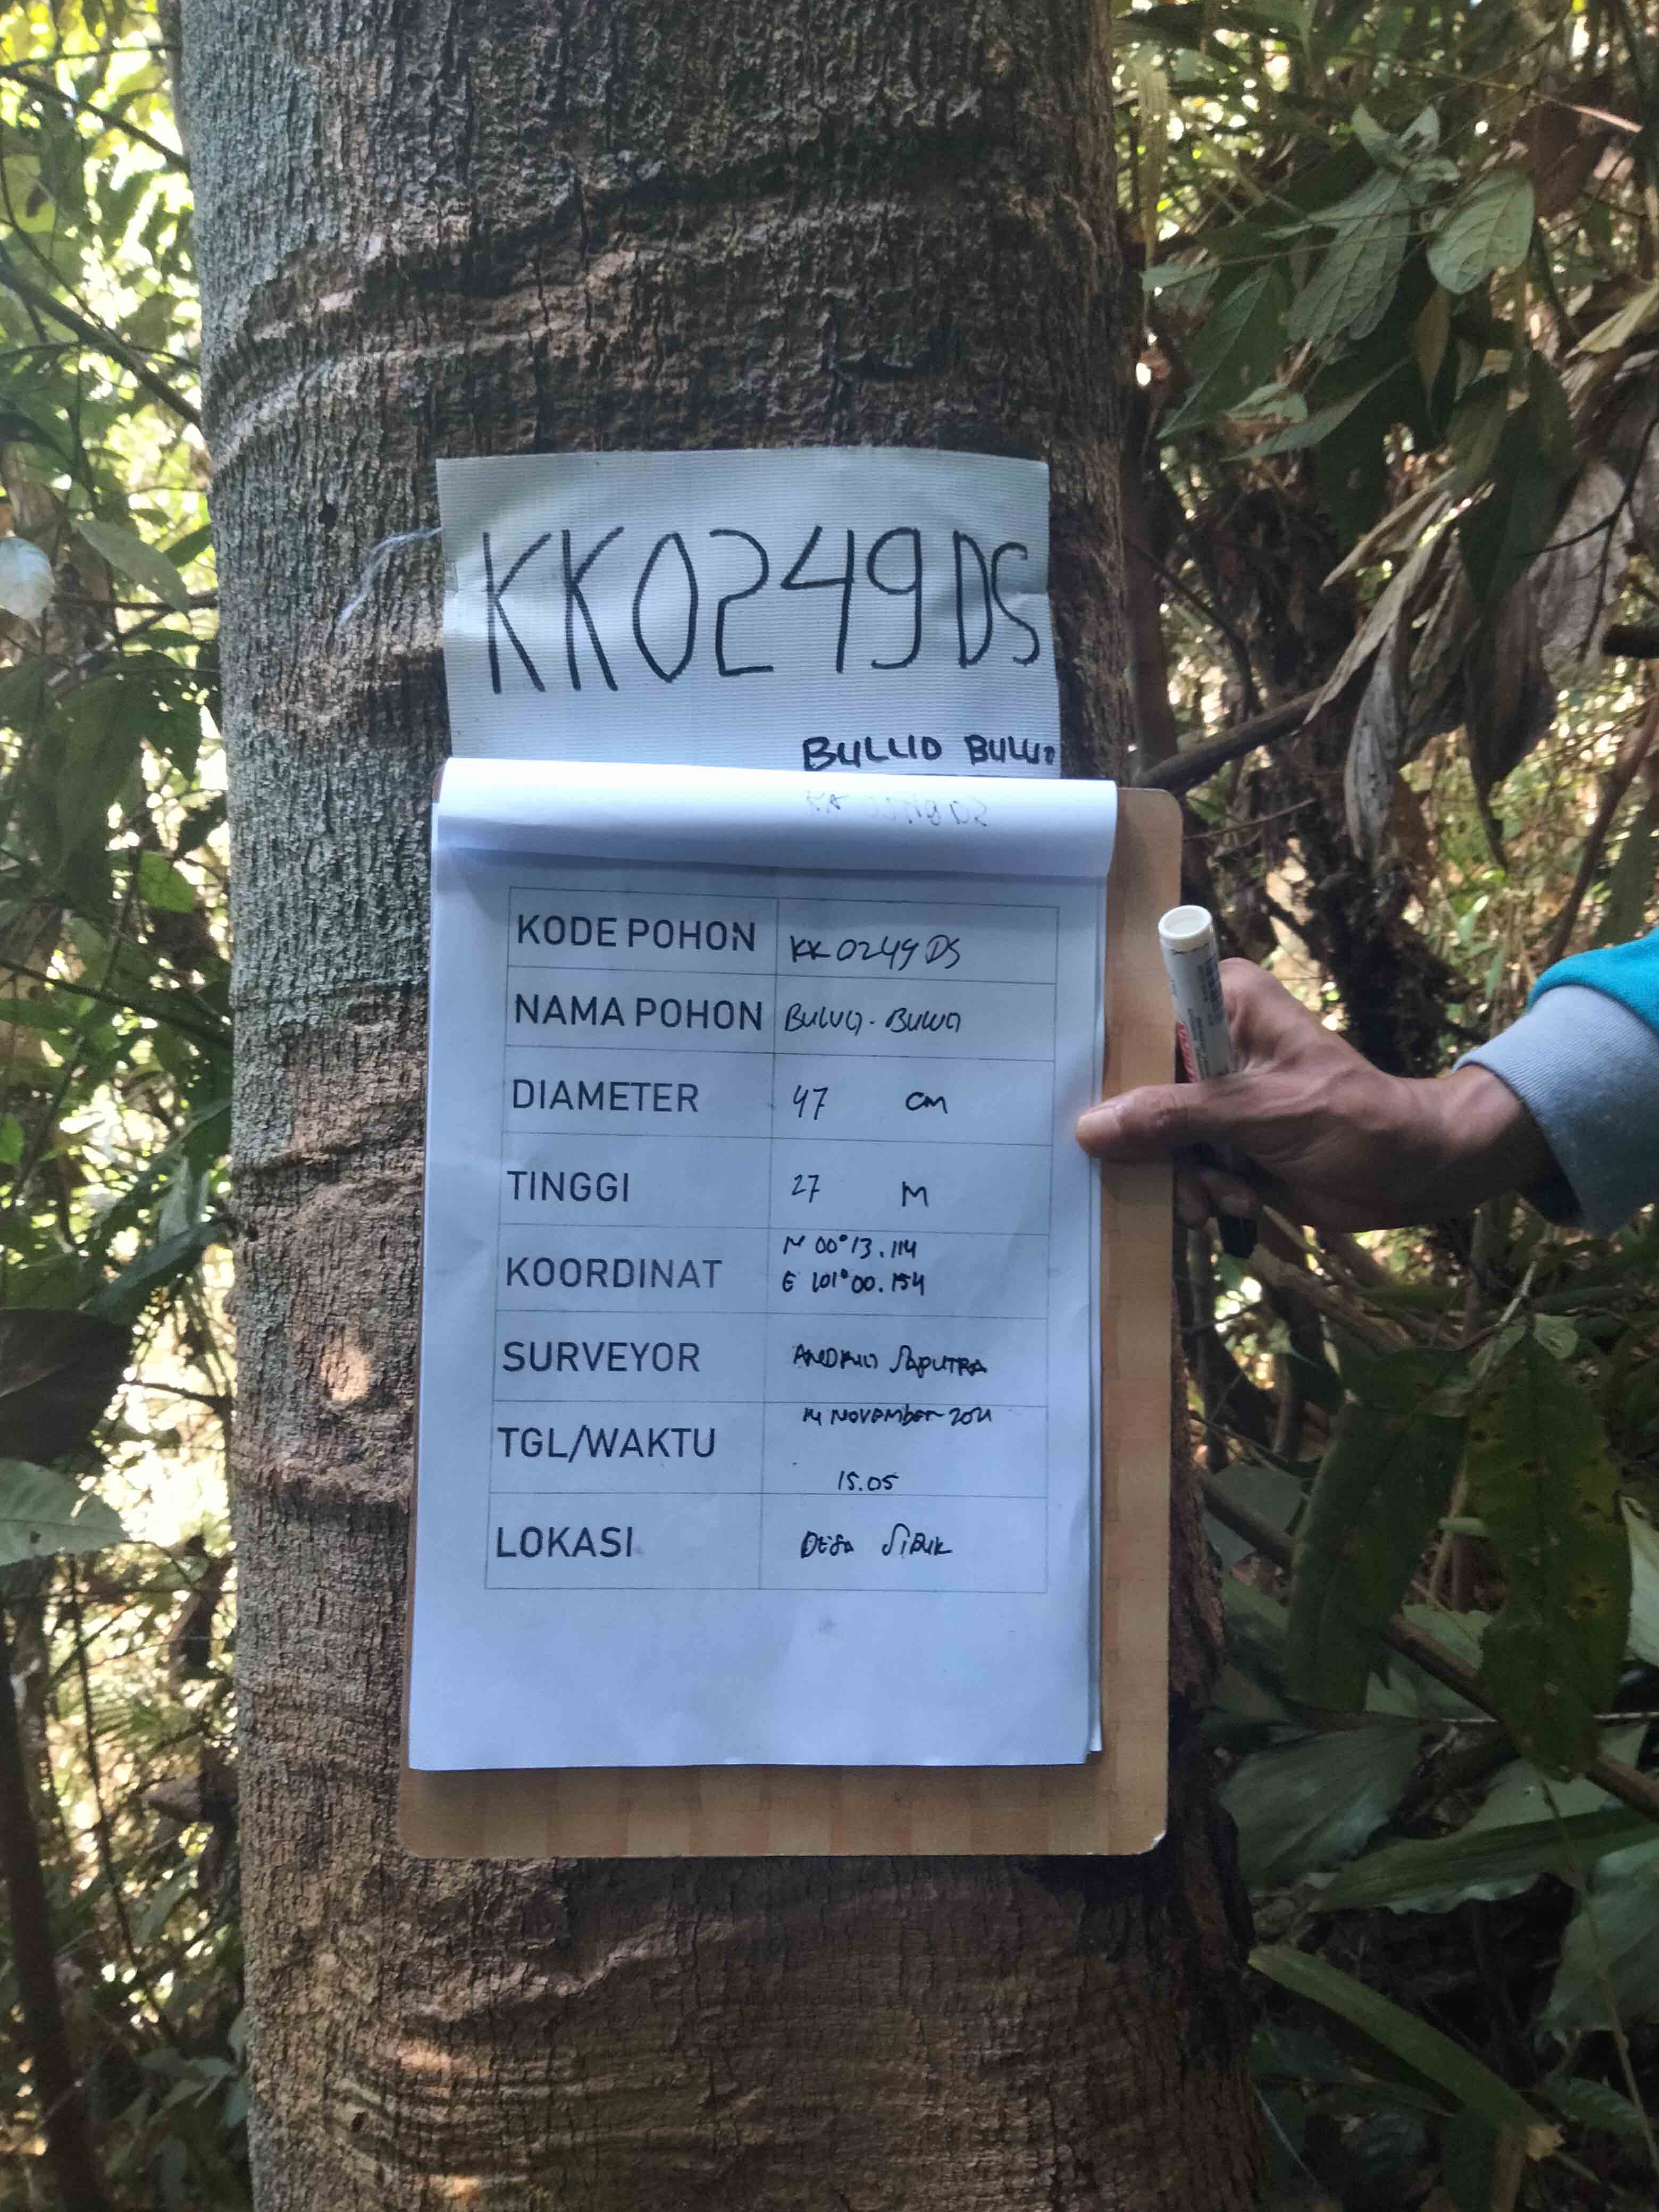 KK0249DS
BULUO BULUO
KODE POHON KK0249DS
NAMA POHON BULUO-BULUO
DIAMETER 47 CM
TINGGI 27 M
KOORDINAT N 00°13.114
E 101°00.154
SURVEYOR SAPUTRA
TGL/WAKTU 14 NOVEMBER 2021
15.05
LOKASI DESA SIBUK